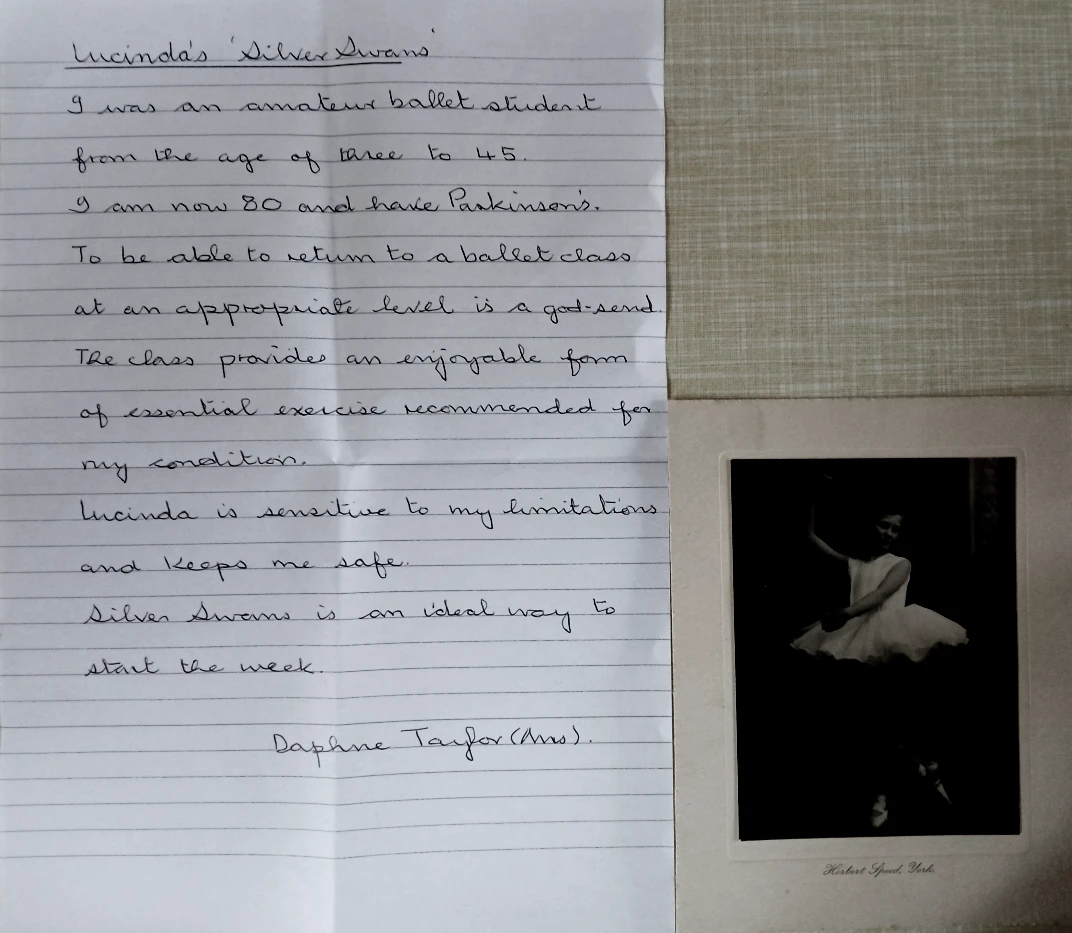 Lucinda's 'Silver Swans'
I was an amateur ballet student
from the age of three to 45.
I am now 80 and have Parkinson's.
To be able to return to a ballet class
at an appropriate level is a god-send.
The class provides an enjoyable form
of essential exercise recommended for
my condition.
Lucinda is sensitive to my limitations
and keeps me safe.
Silver Swans is an ideal way to
start the week.
Daphne Taylor (Mrs).
Herbert Speed, York.